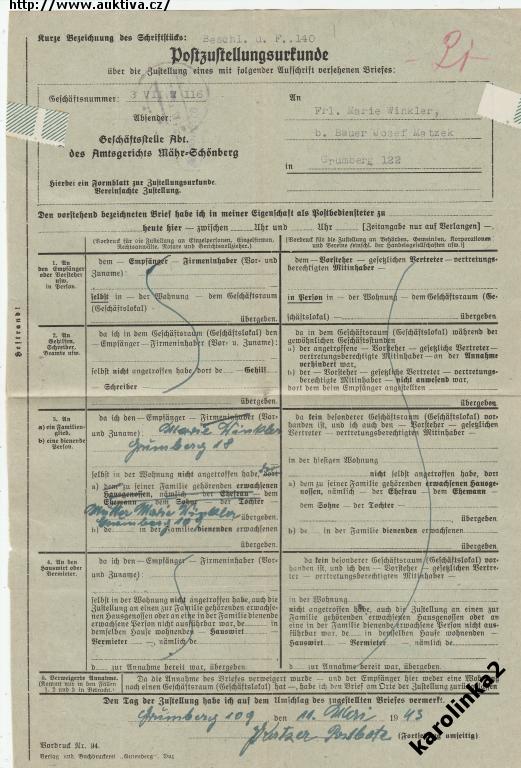 http://www.auktiva.cz/
Kurze Bezeichnung des Schriftstücks: Beschl. u. F. 140
Postzustellungsurkunde
über die Zustellung eines mit folgender Aufschrift versehenen Briefes:
Geschäftsnummer: 3 VII 116
Absender:
Geschäftsstelle Abt.
des Amtsgerichts Mähr-Schönberg
Hierbei ein Formblatt zur Zustellungsurkunde.
Vereinfachte Zustellung.
An
Frl. Marie Winkler,
b. Bauer Josef Matzek
in Grumberg 122
Den vorstehend bezeichneten Brief habe ich in meiner Eigenschaft als Postbediensteter zu
heute hier — zwischen Uhr und Uhr [Zeitangabe nur auf Verlangen] —.
Heftrand!
(Vordruck für die Zustellung an Einzelpersonen, Einzelfirmen,
Rechtsanwälte, Notare und Gerichtsvollzieher.)
(Vordruck für die Zustellung an Behörden, Gemeinden, Korporationen
und Vereine einschl. der Handelsgesellschaften usw.)
1. An
den Empfänger
oder Vorsteher
usw.
in Person.
dem — Empfänger — Firmeninhaber (Vor- und
Zuname):
selbst in — der Wohnung — dem Geschäftsraum
(Geschäftslokal) —
übergeben.
dem — Vorsteher — gesetzlichen Vertreter — vertretungs-
berechtigten Mitinhaber —
in Person in — der Wohnung — dem Geschäftsraum (Ge-
schäftslokal) —
übergeben.
2. An
Gehilfen,
Schreiber,
Beamte usw.
da ich in dem Geschäftsraum (Geschäftslokal) den
— Empfänger — Firmeninhaber (Vor- u. Zuname):
selbst nicht angetroffen habe dort de Gehilf
— Schreiber
übergeben.
da in dem Geschäftsraum (Geschäftslokal) während der
gewöhnlichen Geschäftsstunden
a) der angetroffene — Vorsteher — gesetzliche Vertreter —
vertretungsberechtigte Mitinhaber — an der Annahme
verhindert war,
b) der — Vorsteher — gesetzliche Vertreter — vertretungs-
berechtigte Mitinhaber — nicht anwesend war,
dort dem beim Empfänger angestellten
übergeben.
3. An
a) ein Familien-
glied,
b) eine dienende
Person.
da ich den — Empfänger — Firmeninhaber (Vor-
und Zuname): Marie Winkler
Grumberg 18
selbst in der Wohnung nicht angetroffen habe, dort
a) dem zu seiner Familie gehörenden erwachsenen
Hausgenossen, nämlich — der Ehefrau — dem
Ehemann — dem Sohne — der Tochter —
Mutter Marie Winkler
Grumberg 109 übergeben
b) de in der Familie dienenden erwachsenen
übergeben.
da kein besonderer Geschäftsraum (Geschäftslokal) vor-
handen ist, und ich auch den — Vorsteher — gesetzlichen
Vertreter — vertretungsberechtigten Mitinhaber —
in der hiesigen Wohnung
nicht selbst angetroffen habe, dort
a) dem zu seiner Familie gehörenden erwachsenen Hausge-
nossen, nämlich — der Ehefrau — dem Ehemann
— dem Sohne — der Tochter —
übergeben
b) de in der Familie dienenden erwachsenen
übergeben.
4. An den
Hauswirt oder
Vermieter.
da ich den — Empfänger — Firmeninhaber (Vor-
und Zuname):
selbst in der Wohnung nicht angetroffen habe, auch die
Zustellung an einen zur Familie gehörenden erwachse-
nen Hausgenossen oder an eine in der Familie dienende
erwachsene Person nicht ausführbar war, de in
demselben Hause wohnenden — Hauswirt —
Vermieter —, nämlich de
d zur Annahme bereit war, übergeben.
da kein besonderer Geschäftsraum (Geschäftslokal) vor-
handen ist, und ich den — Vorsteher — gesetzlichen Vertre-
ter — vertretungsberechtigten Mitinhaber —
in der Wohnung
nicht angetroffen habe, auch die Zustellung an einen zur
Familie gehörenden erwachsenen Hausgenossen oder an
eine in der Familie dienende erwachsene Person nicht aus-
führbar war, de in demselben Hause wohnenden
Hauswirt — Vermieter —, nämlich de
d zur Annahme bereit war, übergeben.
5. Verweigerte Annahme.
(Kommt nur in den Fällen
1, 2 und 3 in Betracht.)
Da die Annahme des Briefes verweigert wurde — und der Empfänger hier weder eine Wohnung
noch einen Geschäftsraum (Geschäftslokal) hat —, habe ich den Brief am Orte der Zustellung zurückgelassen
Den Tag der Zustellung habe ich auf dem Umschlag des zugestellten Briefes vermerkt.
Grumberg 109 den 11. Mai 1943
Postbote
(Fortsetzung umseitig)
Vordruck Nr. 94.
Verlag und Buchdruckerei „Gutenberg“
karolinka2